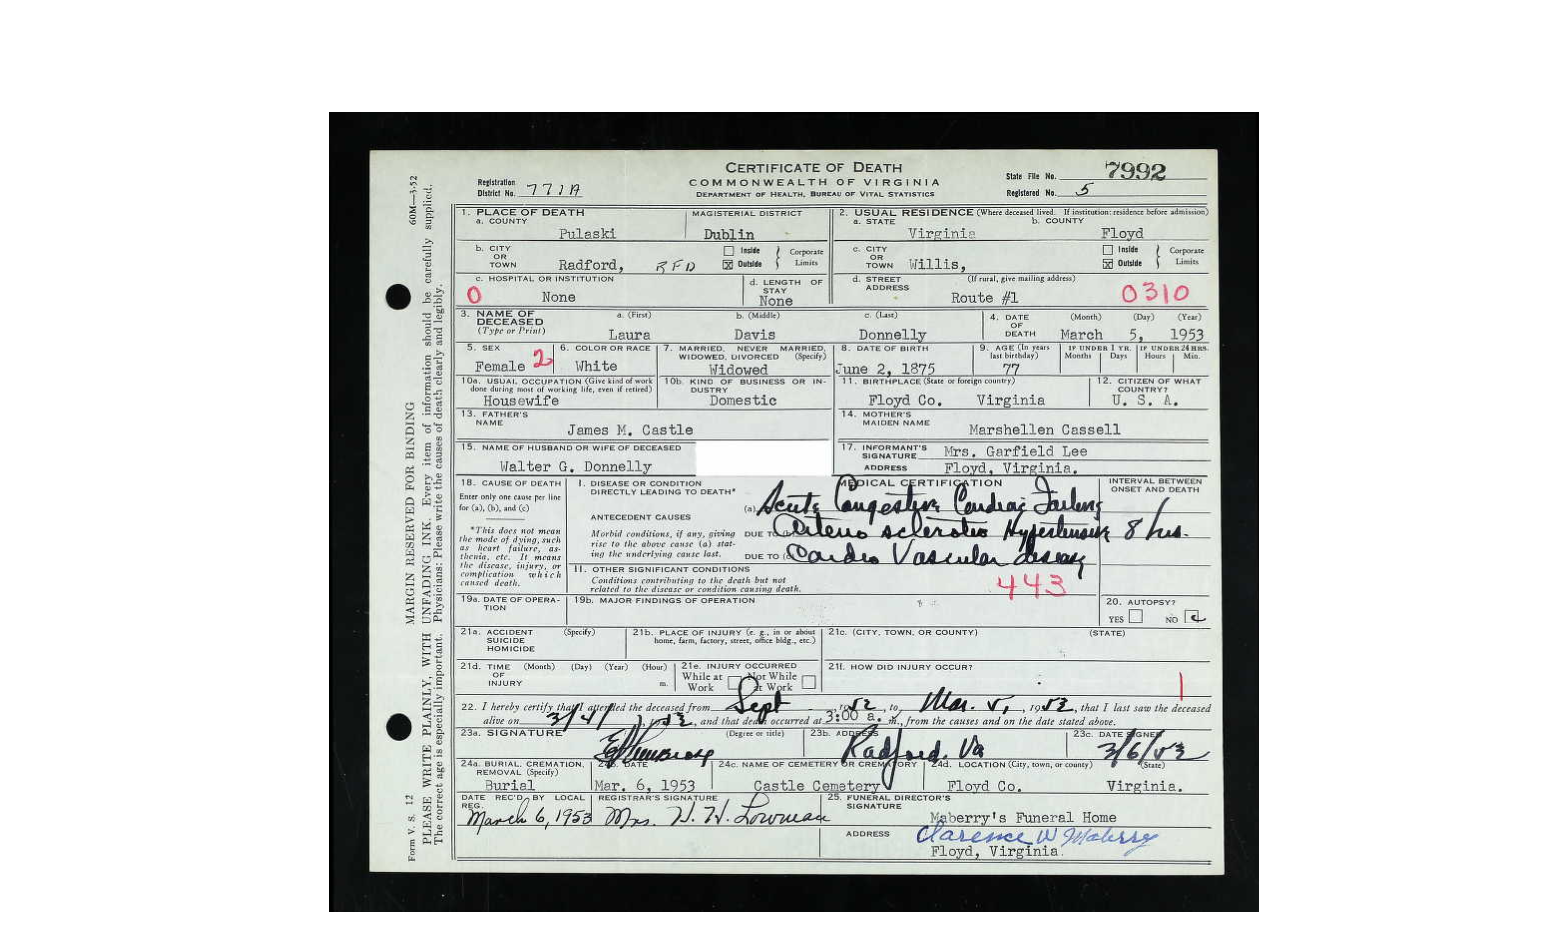 CERTIFICATE OF DEATH
COMMONWEALTH OF VIRGINIA
DEPARTMENT OF HEALTH, BUREAU OF VITAL STATISTICS
Registration District No. 771A
State File No. 7992
Registered No. 5
60M—3-52
MARGIN RESERVED FOR BINDING
PLEASE WRITE PLAINLY, WITH UNFADING INK. Every item of information should be carefully supplied.
The correct age is especially important. Physicians: Please write the causes of death clearly and legibly.
Form V. S. 12
1. PLACE OF DEATH
a. COUNTY Pulaski
MAGISTERIAL DISTRICT Dublin
2. USUAL RESIDENCE (Where deceased lived. If institution: residence before admission)
a. STATE Virginia
b. COUNTY Floyd
b. CITY OR TOWN Radford, RFD
Inside Outside Corporate Limits
c. CITY OR TOWN Willis,
Inside Outside Corporate Limits
c. HOSPITAL OR INSTITUTION
0 None
d. LENGTH OF STAY None
d. STREET ADDRESS (If rural, give mailing address)
Route #1 0310
3. NAME OF DECEASED (Type or Print)
a. (First) Laura
b. (Middle) Davis
c. (Last) Donnelly
4. DATE OF DEATH (Month) (Day) (Year)
March 5, 1953
5. SEX Female 2
6. COLOR OR RACE White
7. MARRIED, NEVER MARRIED, WIDOWED, DIVORCED (Specify) Widowed
8. DATE OF BIRTH June 2, 1875
9. AGE (In years last birthday) 77
IF UNDER 1 YR. Months Days
IF UNDER 24 HRS. Hours Min.
10a. USUAL OCCUPATION (Give kind of work done during most of working life, even if retired) Housewife
10b. KIND OF BUSINESS OR INDUSTRY Domestic
11. BIRTHPLACE (State or foreign country) Floyd Co. Virginia
12. CITIZEN OF WHAT COUNTRY? U. S. A.
13. FATHER'S NAME James M. Castle
14. MOTHER'S MAIDEN NAME Marshellen Cassell
15. NAME OF HUSBAND OR WIFE OF DECEASED Walter G. Donnelly
17. INFORMANT'S SIGNATURE Mrs. Garfield Lee
ADDRESS Floyd, Virginia.
18. CAUSE OF DEATH
Enter only one cause per line for (a), (b), and (c)
*This does not mean the mode of dying, such as heart failure, asthenia, etc. It means the disease, injury, or complication which caused death.
MEDICAL CERTIFICATION
INTERVAL BETWEEN ONSET AND DEATH
I. DISEASE OR CONDITION DIRECTLY LEADING TO DEATH*
(a) Acute Congestive Cardiac Failure
ANTECEDENT CAUSES
Morbid conditions, if any, giving rise to the above cause (a) stating the underlying cause last.
DUE TO Arterio sclerotic Hypertensive 8 hrs.
DUE TO Cardio Vascular disease
II. OTHER SIGNIFICANT CONDITIONS
Conditions contributing to the death but not related to the disease or condition causing death.
443
19a. DATE OF OPERATION
19b. MAJOR FINDINGS OF OPERATION
20. AUTOPSY?
YES NO
21a. ACCIDENT SUICIDE HOMICIDE (Specify)
21b. PLACE OF INJURY (e. g., in or about home, farm, factory, street, office bldg., etc.)
21c. (CITY, TOWN, OR COUNTY) (STATE)
21d. TIME OF INJURY (Month) (Day) (Year) (Hour) m.
21e. INJURY OCCURRED
While at Work Not While at Work
21f. HOW DID INJURY OCCUR?
22. I hereby certify that I attended the deceased from Sept, 1952, to Mar. 5, 1953, that I last saw the deceased
alive on 3/4/, 1953, and that death occurred at 3:00 a. m., from the causes and on the date stated above.
23a. SIGNATURE (Degree or title)
23b. ADDRESS Radford, Va
23c. DATE SIGNED 3/6/53
24a. BURIAL, CREMATION, REMOVAL (Specify) Burial
24b. DATE Mar. 6, 1953
24c. NAME OF CEMETERY OR CREMATORY Castle Cemetery
24d. LOCATION (City, town, or county) (State)
Floyd Co. Virginia.
DATE REC'D BY LOCAL REG. March 6, 1953
REGISTRAR'S SIGNATURE Mrs. W. H. Lowman
25. FUNERAL DIRECTOR'S SIGNATURE Maberry's Funeral Home
Clarence W Maberry
ADDRESS Floyd, Virginia.